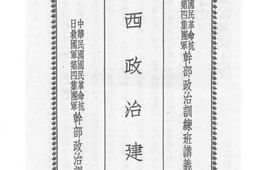 國國民革命抗
國軍第四集團軍
幹部政治訓練班講義
西政治建
中華民國國民革命抗
日救國軍第四集團軍
幹部政治訓